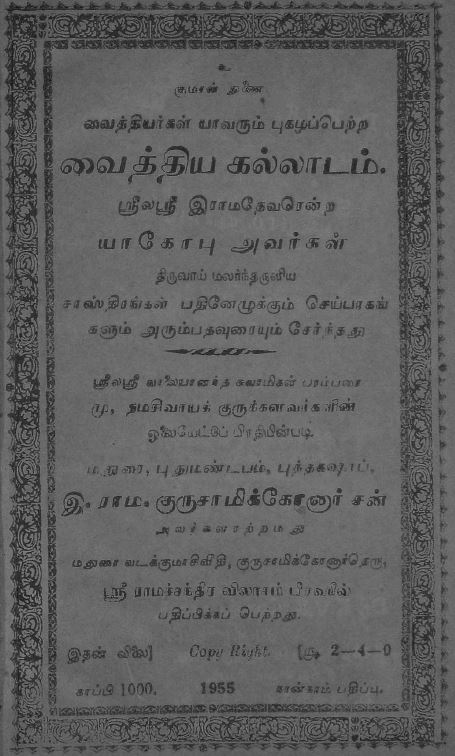 உ
குமரன் துணை
வைத்தியர்கள் யாவரும் புகழப்பெற்ற
வைத்திய கல்லாடம்.
ஸ்ரீலஸ்ரீ இராமதேவரென்ற
யாகோபு அவர்கள்
திருவாய் மலர்ந்தருளிய
சாஸ்திரங்கள் பதினேழுக்கும் செய்பாகங்
களும் அரும்பதவுரையும் சேர்ந்தது
ஸ்ரீலஸ்ரீ வாலையானந்த சுவாமிகள் பரம்பரை
மு, நமசிவாயக் குருக்களவர்களின்
ஓலையேட்டுப் பிரதியின்படி
மதுரை, புதுமண்டபம், புத்தகஷாப்,
இ. ராம. குருசாமிக்கோனார் சன்
அவர்களாற்றமது
மதுரை வடக்குமாசிவீதி, குருசாமிக்கோனார்தெரு,
ஸ்ரீ ராமச்சந்திர விலாசம் பிரஸில்
பதிப்பிக்கப் பெற்றது.
இதன் விலை] Copy Right. [ரூ 2—4—0
காப்பி 1000. 1955 நான்காம் பதிப்பு.